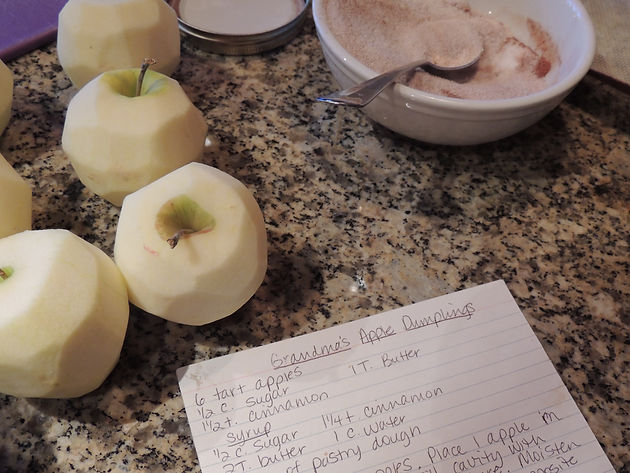 Grandma's Apple Dumplings
6 tart apples
½ c. sugar 1T. Butter
1½ t. cinnamon
Syrup
½ c. sugar 1¼ t cinnamon
2T. butter 1 c. water
of pastry dough
apples. Place 1 apple in
cavity with
Moisten